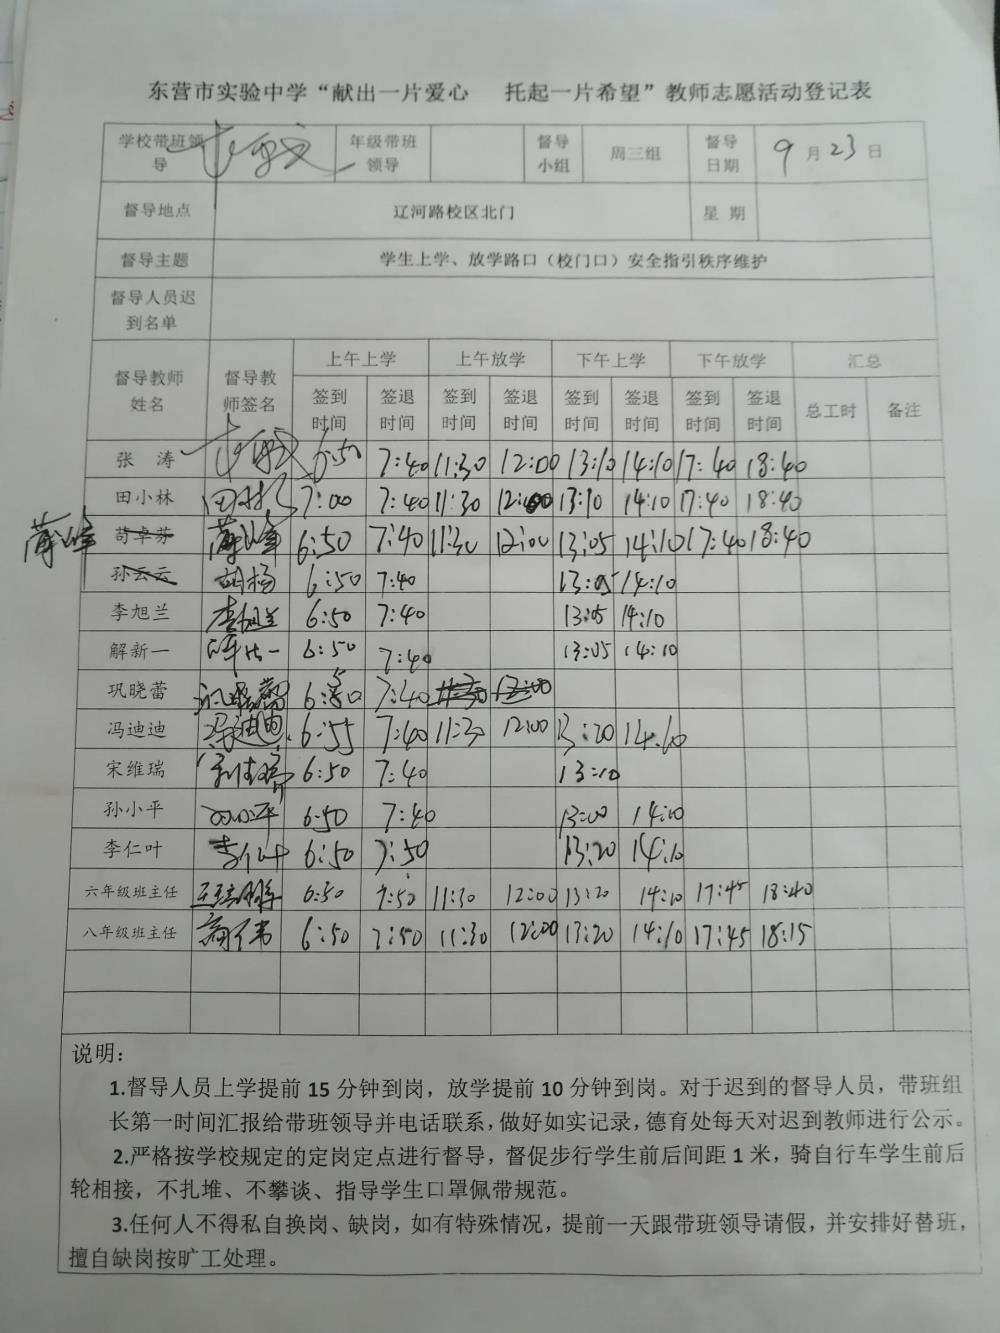 东营市实验中学“献出一片爱心 托起一片希望”教师志愿活动登记表
学校带班领导 年级带班领导 督导小组 周三组 督导日期 9月23日
督导地点 辽河路校区北门 星 期
督导主题 学生上学、放学路口（校门口）安全指引秩序维护
督导人员迟到名单
督导教师姓名 督导教师签名 上午上学 上午放学 下午上学 下午放学 汇总
签到时间 签退时间 签到时间 签退时间 签到时间 签退时间 签到时间 签退时间 总工时 备注
张 涛 6:50 7:40 11:30 12:00 13:10 14:10 17:40 18:40
田小林 田小林 7:00 7:40 11:30 12:00 13:10 14:10 17:40 18:40
薄峰 苟卓芬 薄峰 6:50 7:40 11:30 12:00 13:05 14:10 17:40 18:40
孙云云 胡杨 6:50 7:40 13:05 14:10
李旭兰 李旭兰 6:50 7:40 13:05 14:10
解新一 6:50 7:40 13:05 14:10
巩晓蕾 巩晓蕾 6:50 7:40 11:30 12:00
冯迪迪 冯迪迪 6:55 7:40 11:30 12:00 13:20 14:10
宋维瑞 宋维瑞 6:50 7:40 13:10
孙小平 孙小平 6:50 7:40 13:00 14:10
李仁叶 李仁叶 6:50 7:50 13:20 14:10
六年级班主任 6:50 7:50 11:30 12:00 13:20 14:10 17:45 18:40
八年级班主任 6:50 7:50 11:30 12:00 13:20 14:10 17:45 18:15
说明：
1.督导人员上学提前 15 分钟到岗，放学提前 10 分钟到岗。对于迟到的督导人员，带班组
长第一时间汇报给带班领导并电话联系，做好如实记录，德育处每天对迟到教师进行公示。
2.严格按学校规定的定岗定点进行督导，督促步行学生前后间距 1 米，骑自行车学生前后
轮相接，不扎堆、不攀谈、指导学生口罩佩带规范。
3.任何人不得私自换岗、缺岗，如有特殊情况，提前一天跟带班领导请假，并安排好替班，
擅自缺岗按旷工处理。